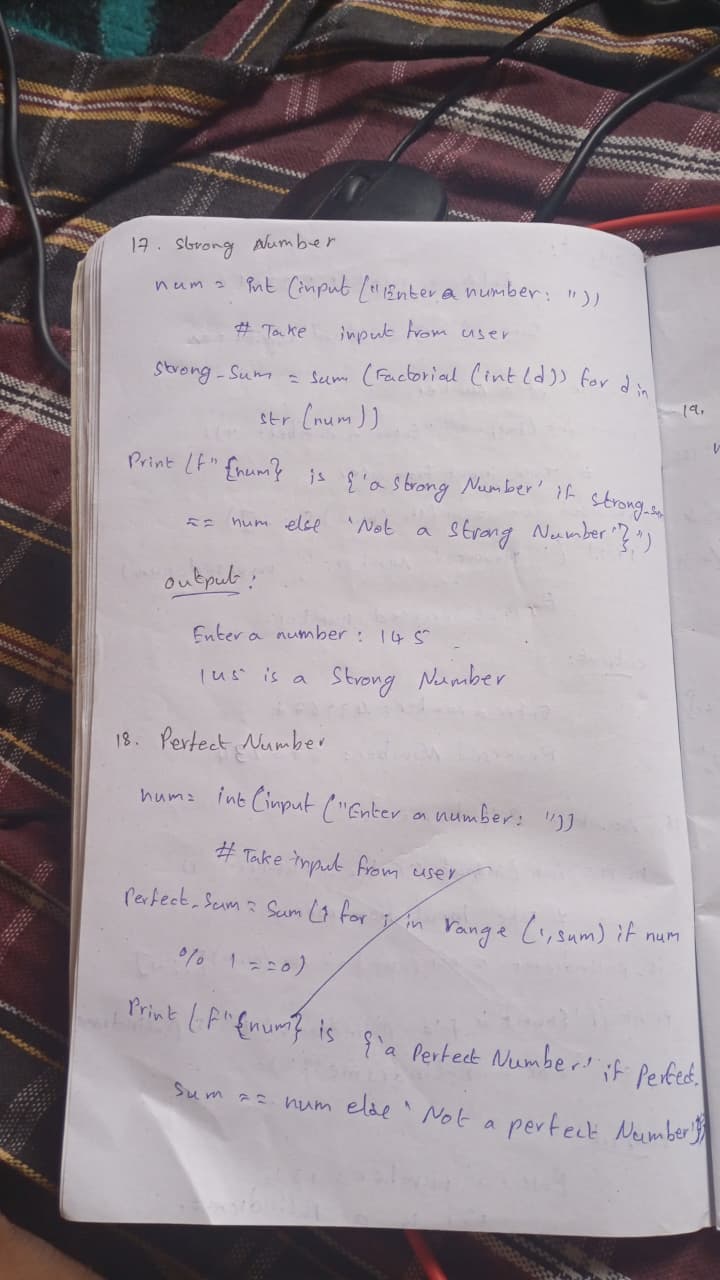 17. Strong Number
num = int (input ("Enter a number: "))
# Take input from user
Strong_Sum = sum (Factorial (int (d)) for d in
str (num))
19.
Print (f" {num} is {'a Strong Number' if strong_sum
== num else 'Not a Strong Number'}")
output:
Enter a number : 145
145 is a Strong Number
18. Perfect Number
num = int (input ("Enter a number: "))
# Take input from user
Perfect_Sum = Sum (i for i in range (1, sum) if num
% i == 0)
Print (f"{num} is {'a Perfect Number' if Perfect_
Sum == num else 'Not a perfect Number'})